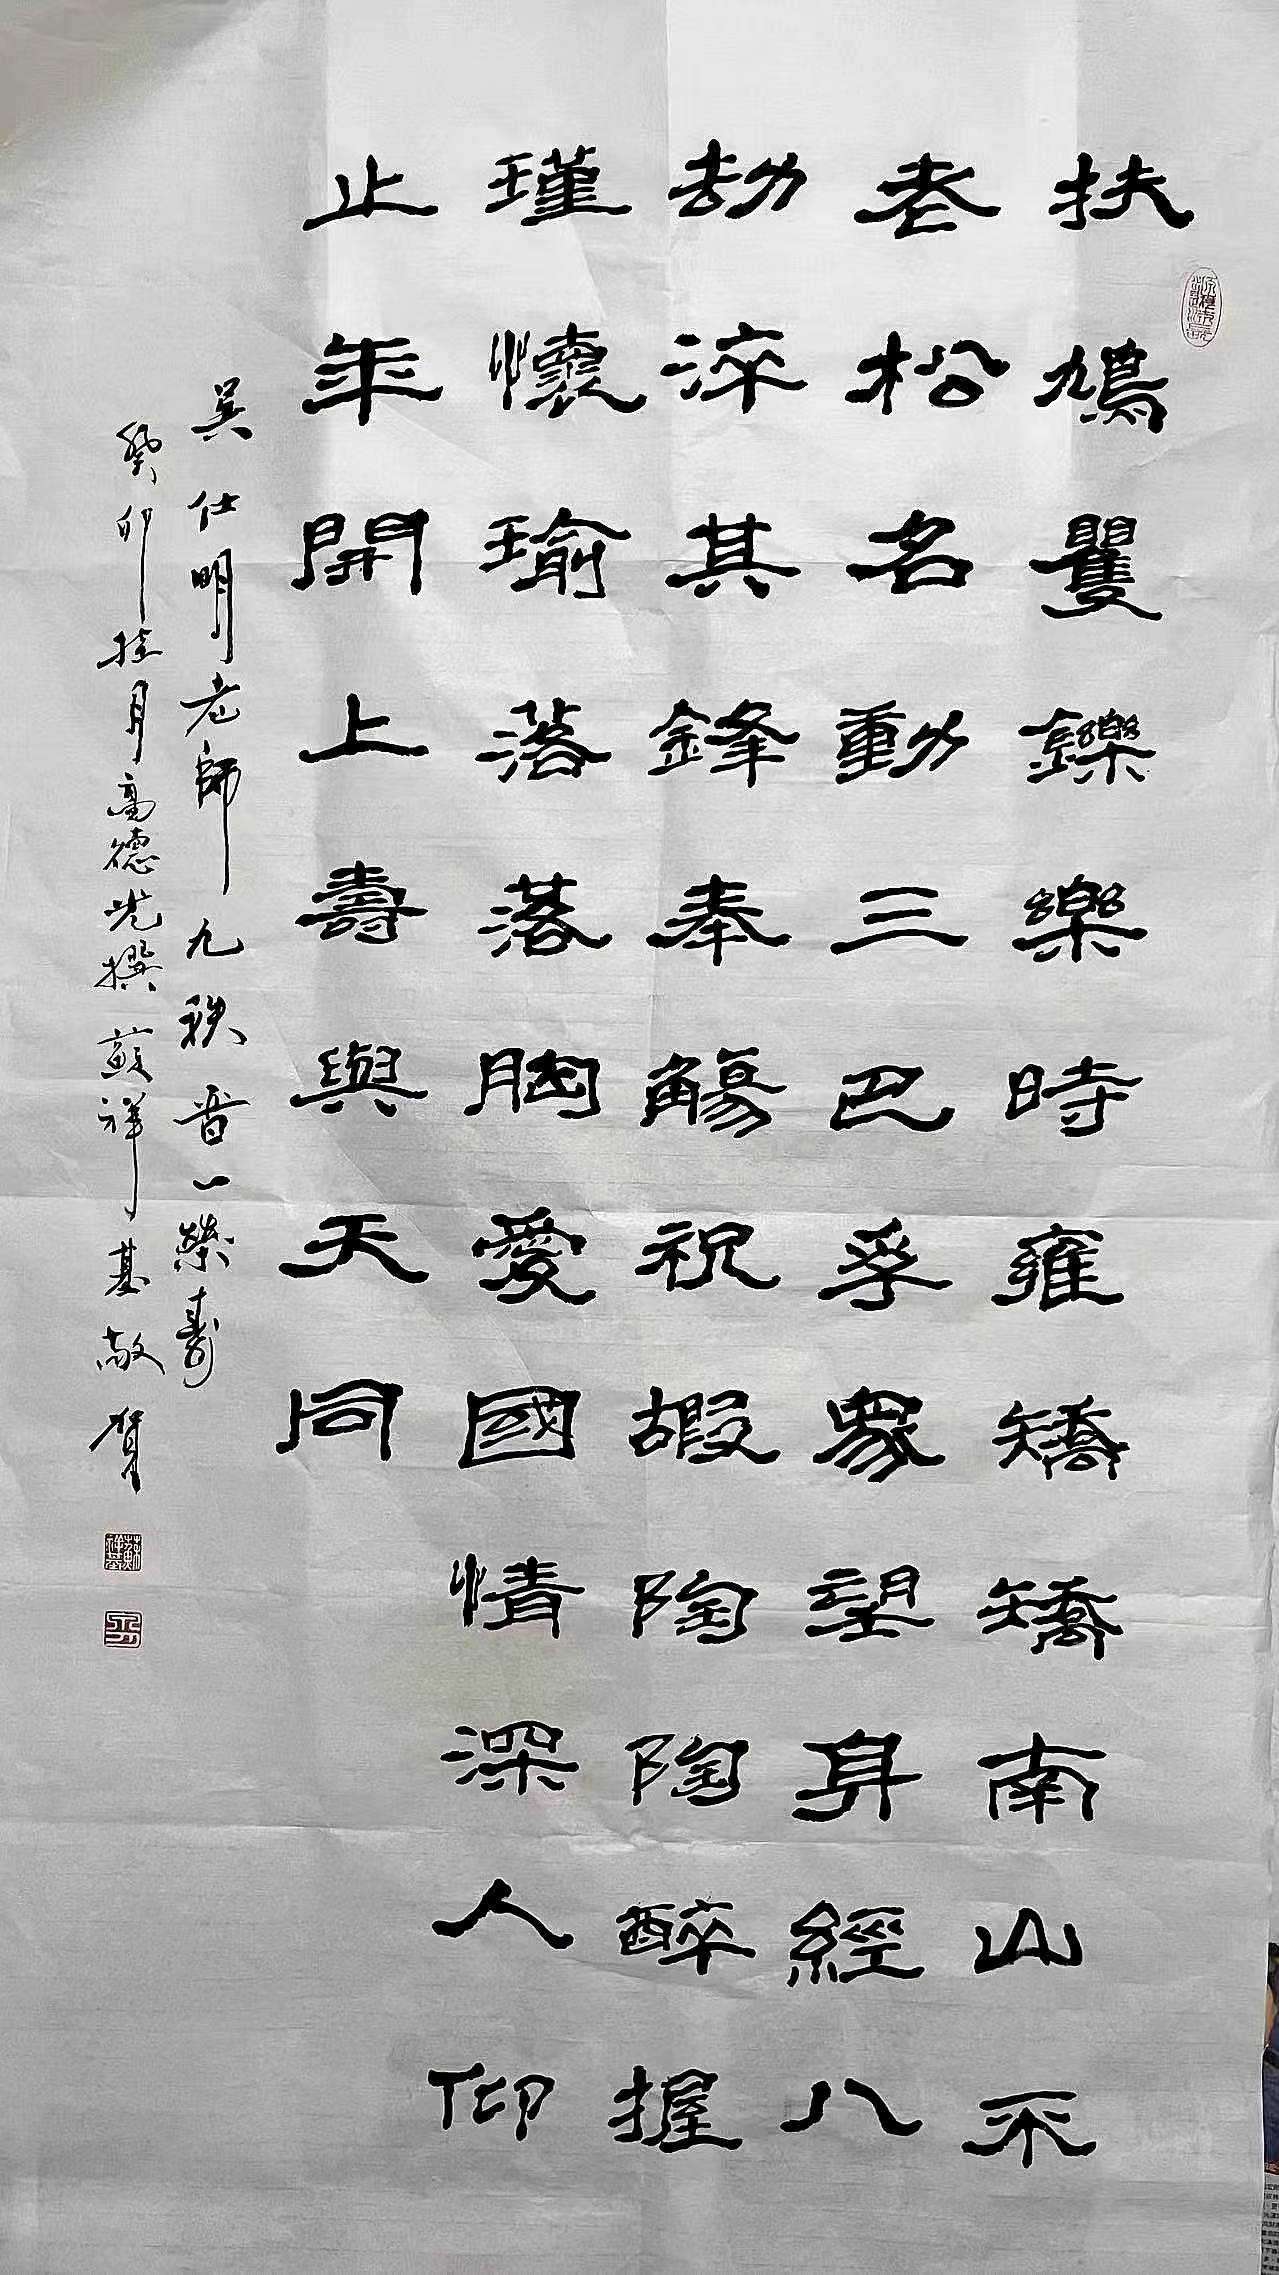 扶鳩矍鑠樂時雍矯矯南山不
老松名動三巴孚眾望身經八
劫淬其鋒奉觴祝嘏陶陶醉握
瑾懷瑜落落胸愛國情深人仰
止年開上壽與天同
吴仕明老師九秩晋一榮壽
癸卯桂月高德光撰蘇祥基敬賀
蘇祥基